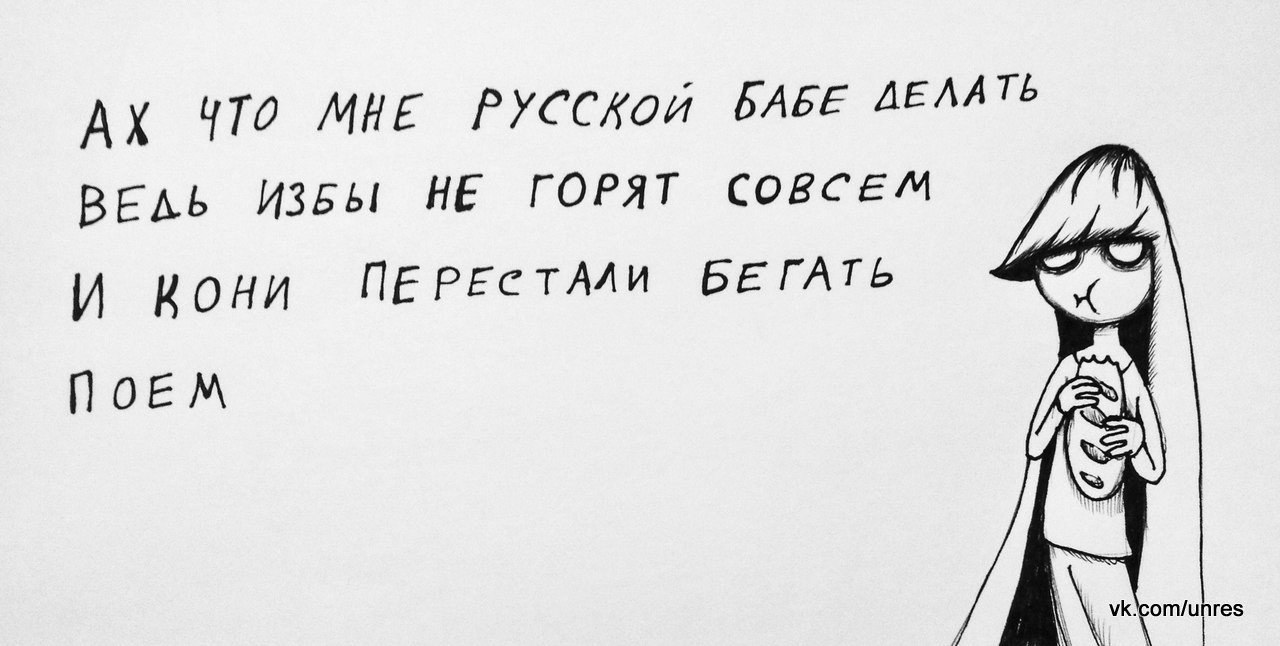 АХ ЧТО МНЕ РУССКОЙ БАБЕ ДЕЛАТЬ
ВЕДЬ ИЗБЫ НЕ ГОРЯТ СОВСЕМ
И КОНИ ПЕРЕСТАЛИ БЕГАТЬ
ПОЕМ
vk.com/unres